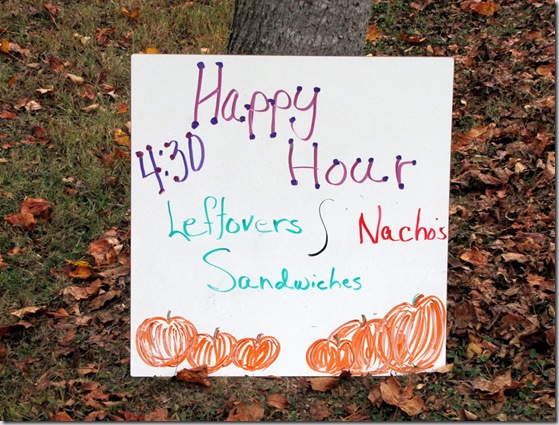 Happy
4:30 Hour
Leftovers Nacho's
Sandwiches